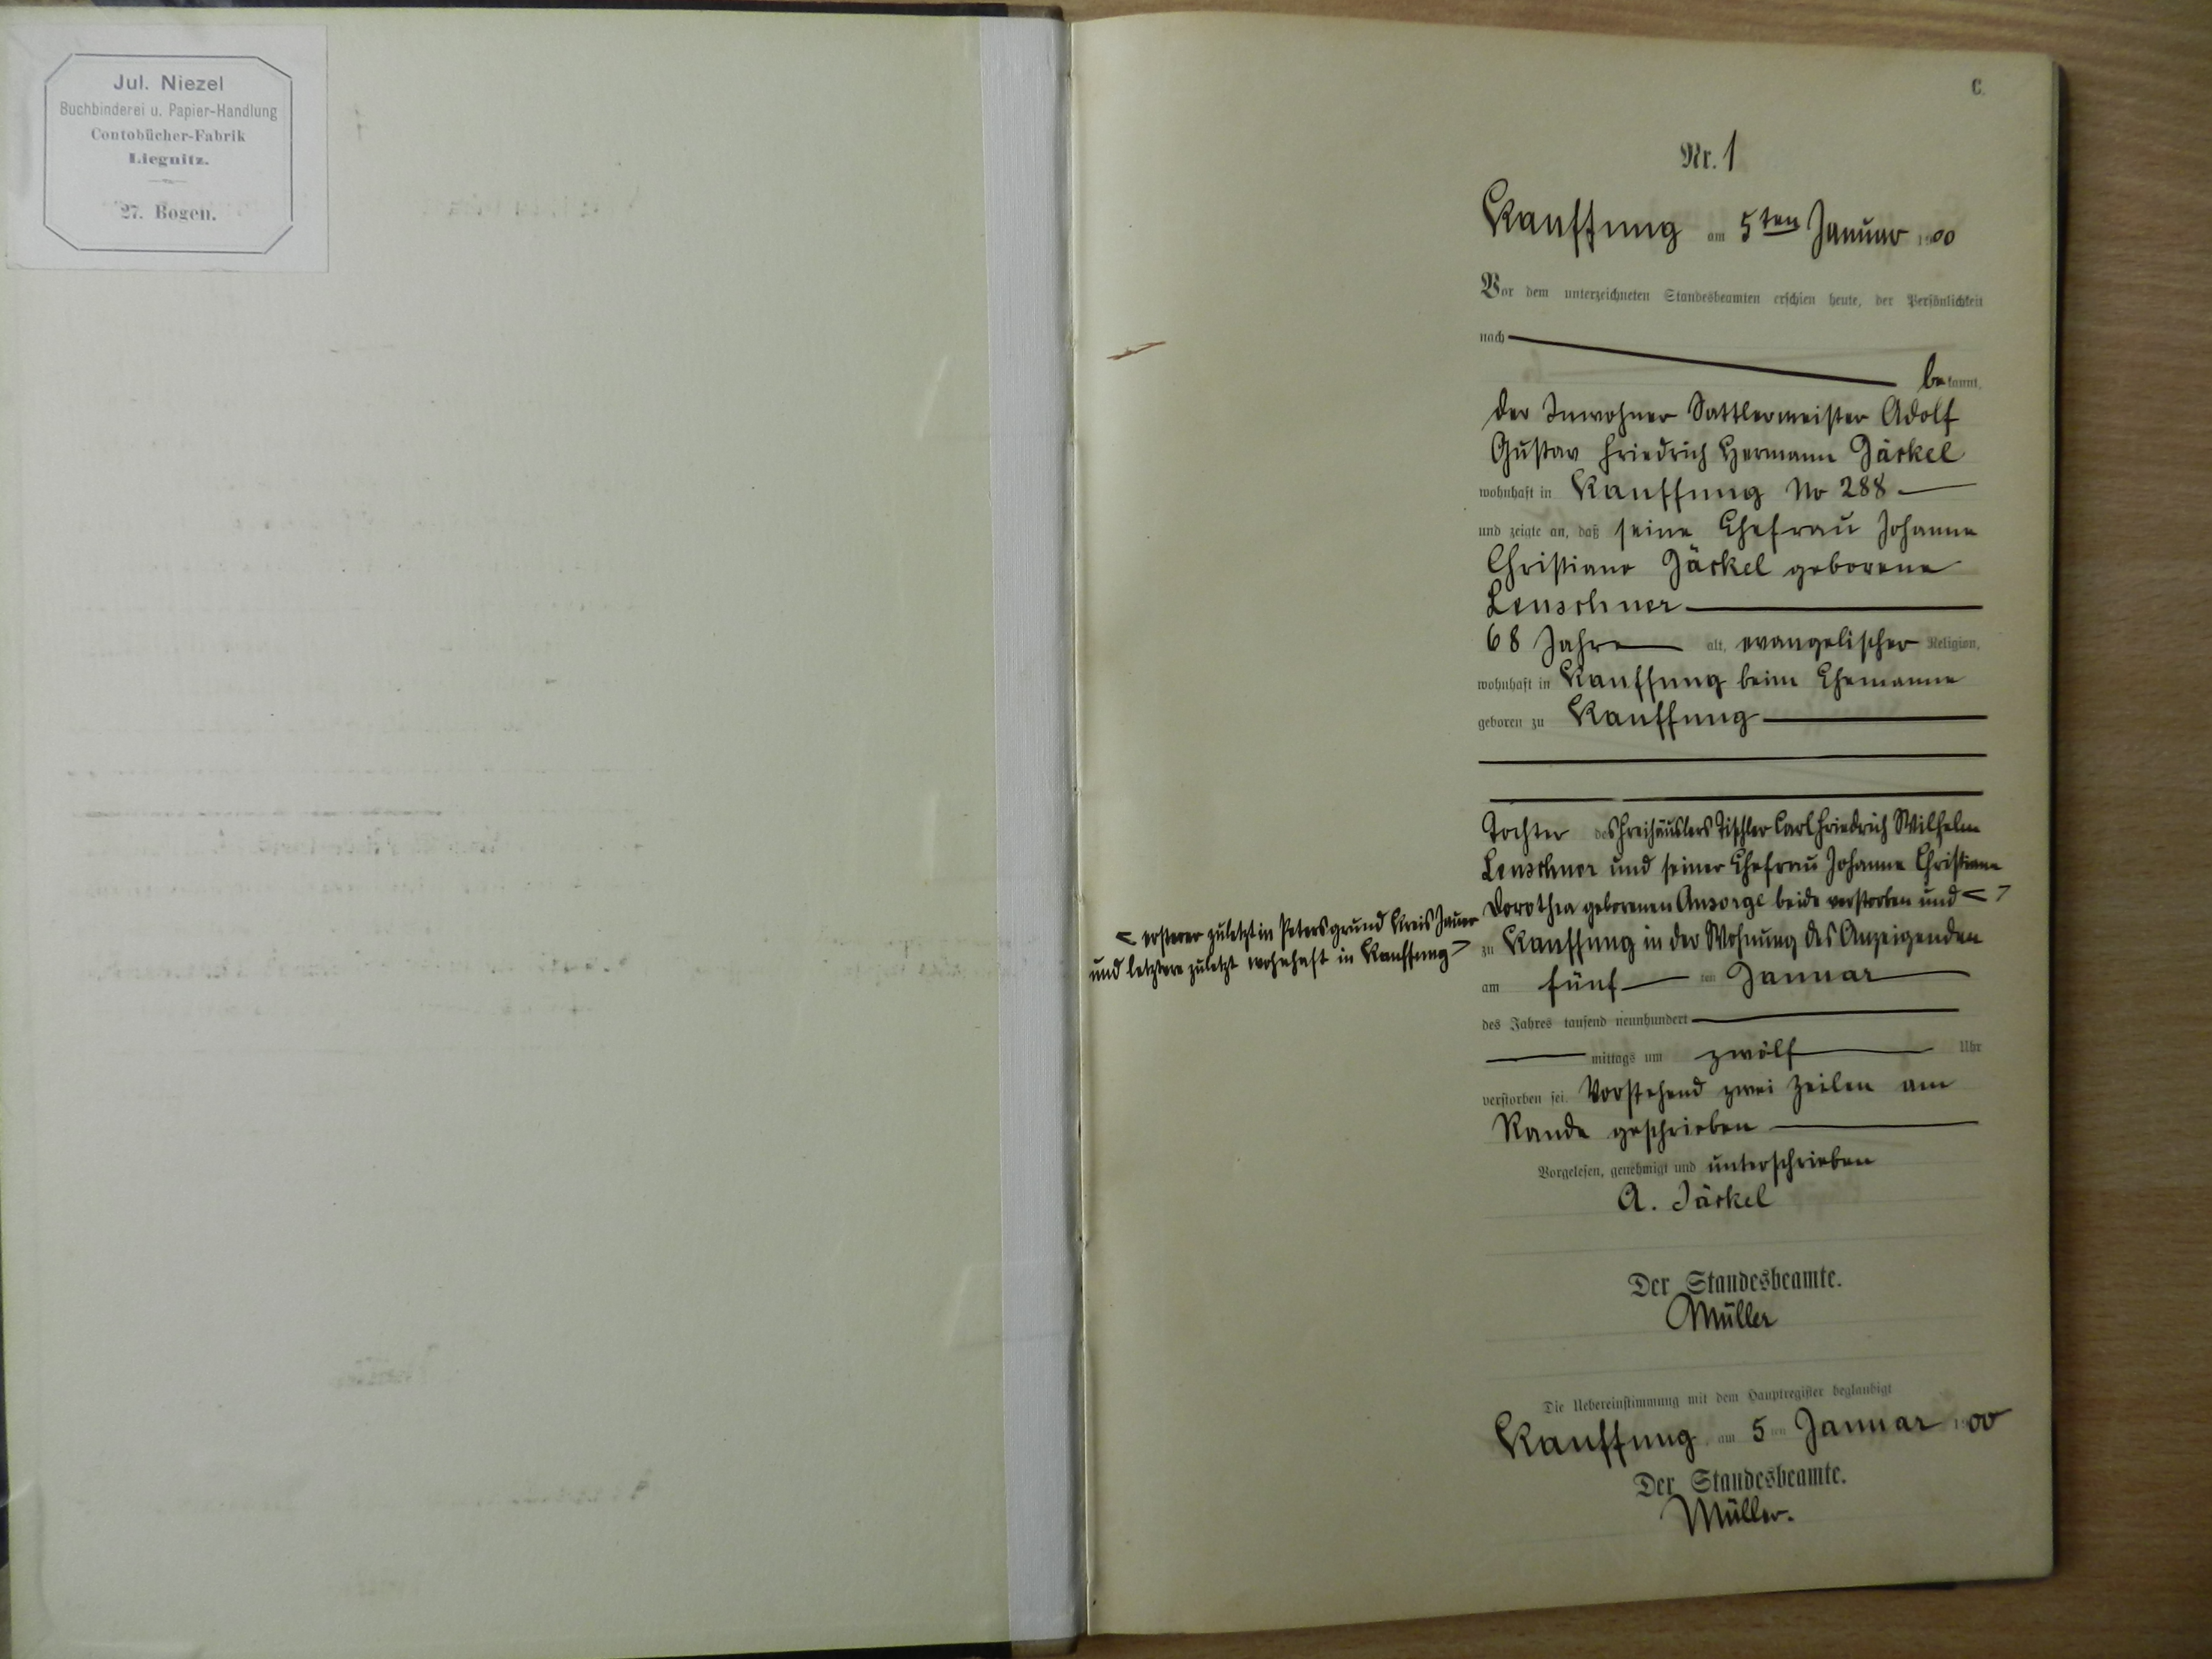 Jul. Niezel
Buchbinderei u. Papier-Handlung
Contobücher-Fabrik
Liegnitz.
27. Bogen.
C.
Nr. 1
Kauffung am 5ten Januar 1900
Vor dem unterzeichneten Standesbeamten erschien heute, der Persönlichkeit
nach
bekannt,
der Inwohner Sattlermeister Adolf
Gustav Friedrich Hermann Jäckel
wohnhaft in Kauffung No 288
und zeigte an, daß seine Ehefrau Johanne
Christiane Jäckel geborene
Leuschner
68 Jahre alt, evangelischer Religion,
wohnhaft in Kauffung beim Ehemanne
geboren zu Kauffung
Tochter des Freihäuslers Tischler Carl Friedrich Wilhelm
Leuschner und seiner Ehefrau Johanne Christiane
Dorothea geborenen Ansorge beide verstorben und < >
< ersterer zuletzt in Petersgrund Kreis Jauer
und letztere zuletzt wohnhaft in Kauffung >
zu Kauffung in der Wohnung des Anzeigenden
am fünf ten Januar
des Jahres tausend neunhundert
mittags um zwölf Uhr
verstorben sei. Vorstehend zwei Zeilen am
Rande geschrieben
Vorgelesen, genehmigt und unterschrieben
A. Jäckel
Der Standesbeamte.
Müller
Die Uebereinstimmung mit dem Hauptregister beglaubigt
Kauffung, am 5ten Januar 1900
Der Standesbeamte.
Müller.